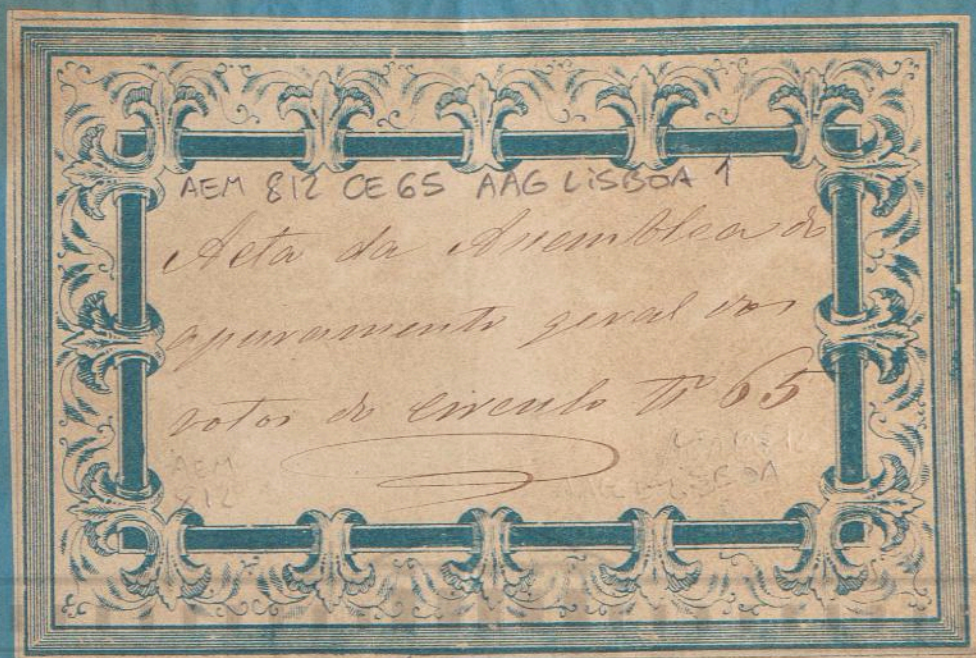 AEM 812 CE 65 AAG LiSBOA 1
Acta da Assemblea de
apuramento geral dos
votos do circulo Nº 65
AEM
812
LiSBOA